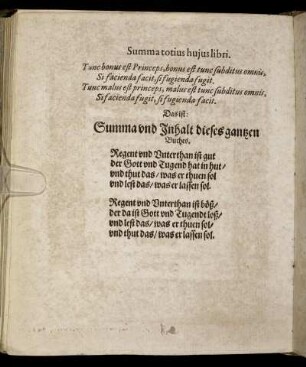 Summa totius hujus libri.
Tunc bonus est Princeps, bonus est tunc subditus omnis,
Si facienda facit, si fugienda fugit.
Tunc malus est princeps, malus est tunc subditus omnis,
Si facienda fugit, si fugienda facit.
Das ist:
Summa vnd Inhalt dieses gantzen
Buches.
Regent vnd Vnterthan ist gut
der Gott vnd Tugend hat in hut/
vnd thut das/ was er thuen sol
vnd lest das/ was er lassen sol.
Regent vnd Vnterthan ist böß/
der da ist Gott vnd Tugendt loß/
vnd lest das/ was er thuen sol/
vnd thut das/ was er lassen sol.